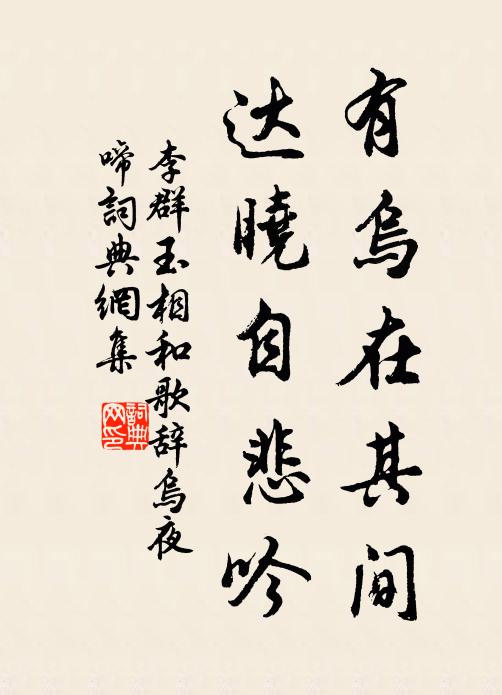 有烏在其间
达曉自悲吟
李群玉相和歌辞烏夜
啼詞典網集
詞典
网印